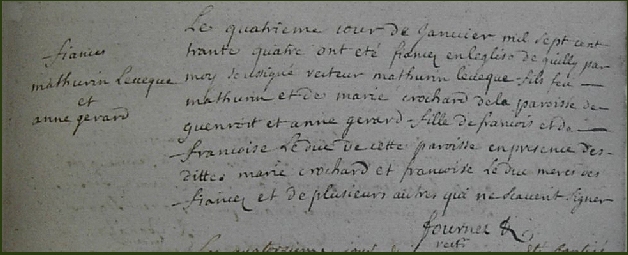 fiances
mathurin Leveque
et
anne gerard
Le quatrieme jour de Janvier mil sept cent
trante quatre ont été fiancez en leglise de quilly par
moy soussigné recteur mathurin leveque fils feu
mathurin et de marie crochard de la paroisse de
guenroit et anne gerard fille de francois et de
francoise Le duc de cette paroisse en presence des
dittes marie crochard et francoise Le duc meres des
fiancez et de plusieurs autres qui ne scavent signer
fournet
rectr